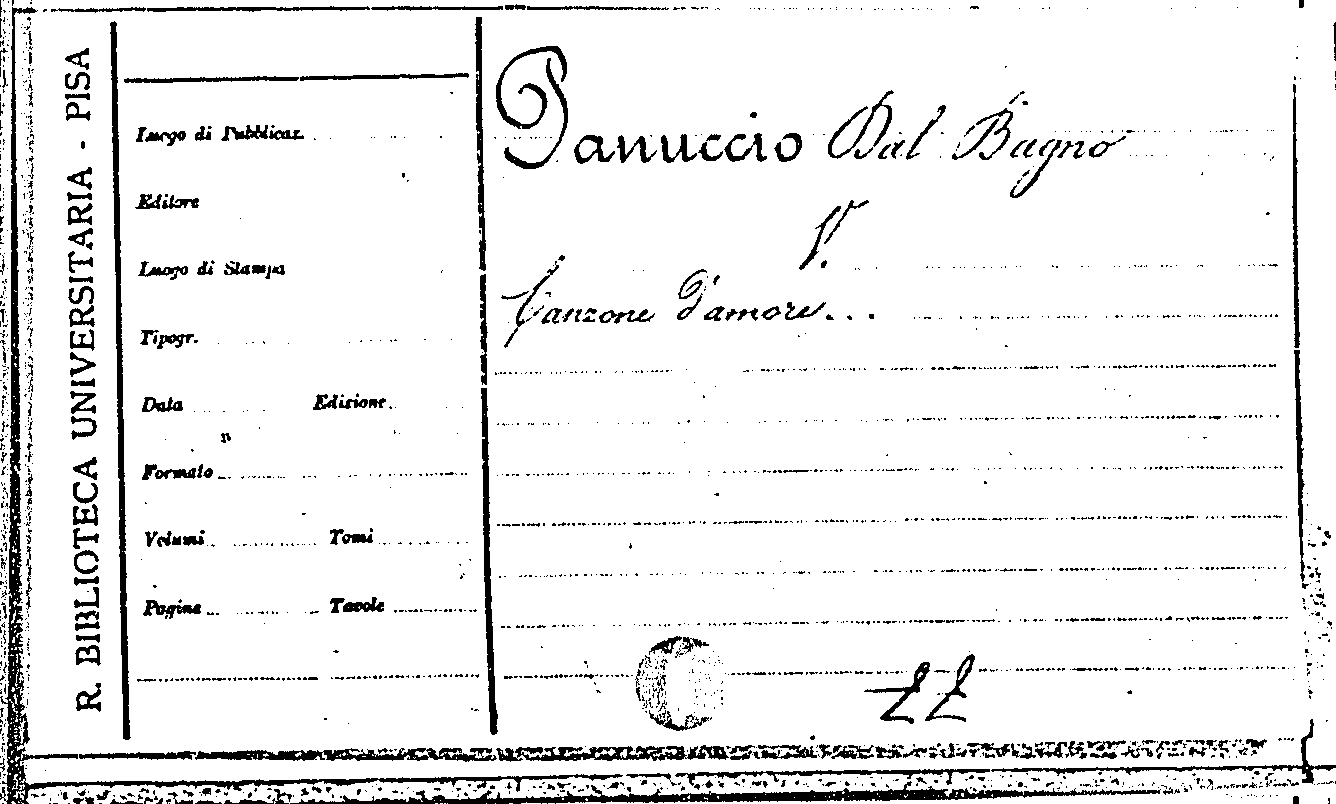 R. BIBLIOTECA UNIVERSITARIA - PISA
Luogo di Pubblicaz.
Editore
Luogo di Stampa
Tipogr.
Data Edizione
Formato
Volumi Tomi
Pagine Tavole
Panuccio Dal Bagno
V.
Canzone d'amore...